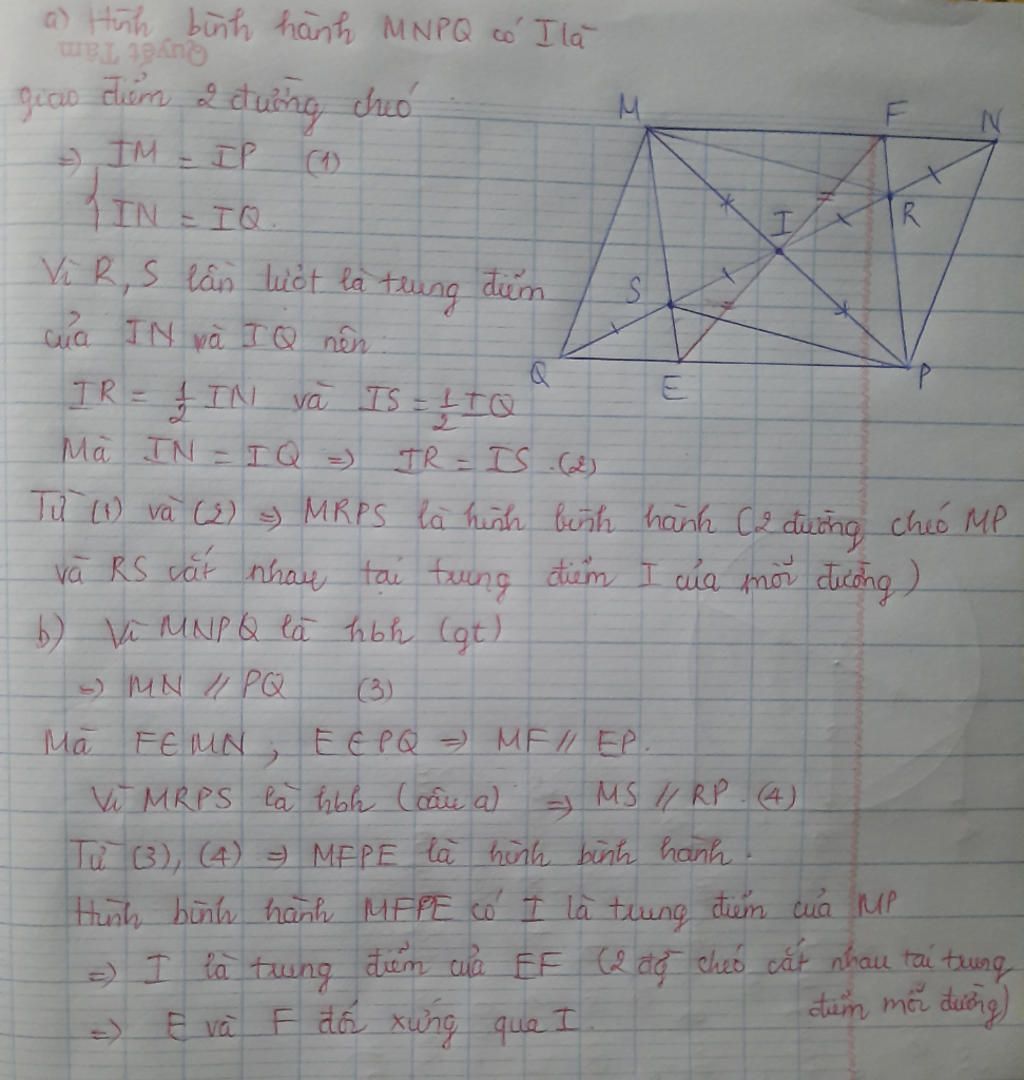 a) Hình bình hành MNPQ có I là
Quyết Tâm
giao điểm 2 đường chéo
=> { IM = IP (1)
IN = IQ.
Vì R, S lần lượt là trung điểm
của IN và IQ nên
IR = 1/2 IN và IS = 1/2 IQ
Mà IN = IQ => IR = IS. (2)
Từ (1) và (2) => MRPS là hình bình hành (2 đường chéo MP
và RS cắt nhau tại trung điểm I của mỗi đường)
b) Vì MNPQ là hbh (gt)
=> MN // PQ (3)
Mà F∈MN, E∈PQ => MF // EP.
Vì MRPS là hbh (câu a) => MS // RP. (4)
Từ (3), (4) => MFPE là hình bình hành.
Hình bình hành MFPE có I là trung điểm của MP
=> I là trung điểm của EF (2 đg chéo cắt nhau tại trung
điểm mỗi đường)
=> E và F đối xứng qua I.
M F N
I R
S
Q E P